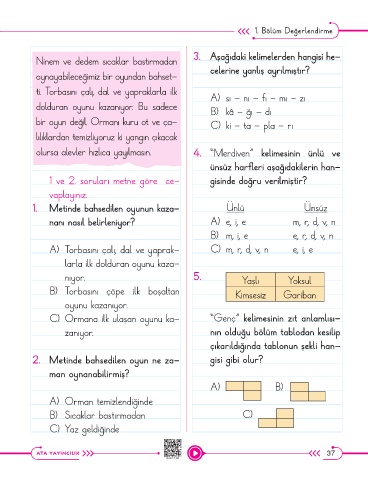 1. Bölüm Değerlendirme
Ninem ve dedem sıcaklar bastırmadan
oynayabileceğimiz bir oyundan bahset-
ti. Torbasını çalı, dal ve yapraklarla ilk
dolduran oyunu kazanıyor. Bu sadece
bir oyun değil. Ormanı kuru ot ve ça-
lılıklardan temizliyoruz ki yangın çıkacak
olursa alevler hızlıca yayılmasın.
1 ve 2. soruları metne göre ce-
vaplayınız.
1. Metinde bahsedilen oyunun kaza-
nanı nasıl belirleniyor?
A) Torbasını çalı, dal ve yaprak-
larla ilk dolduran oyunu kaza-
nıyor.
B) Torbasını çöpe ilk boşaltan
oyunu kazanıyor.
C) Ormana ilk ulaşan oyunu ka-
zanıyor.
2. Metinde bahsedilen oyun ne za-
man oynanabilirmiş?
A) Orman temizlendiğinde
B) Sıcaklar bastırmadan
C) Yaz geldiğinde
3. Aşağıdaki kelimelerden hangisi he-
celerine yanlış ayrılmıştır?
A) sı – nı – fı – mı – zı
B) kâ – ğı – dı
C) ki – ta – pla – rı
4. "Merdiven" kelimesinin ünlü ve
ünsüz harfleri aşağıdakilerin han-
gisinde doğru verilmiştir?
Ünlü Ünsüz
A) e, i, e m, r, d, v, n
B) m, i, e e, r, d, v, n
C) m, r, d, v, n e, i, e
5.
Yaşlı Yoksul
Kimsesiz Gariban
"Genç" kelimesinin zıt anlamlısı-
nın olduğu bölüm tablodan kesilip
çıkarıldığında tablonun şekli han-
gisi gibi olur?
A) B)
C)
ATA YAYINCILIK
37